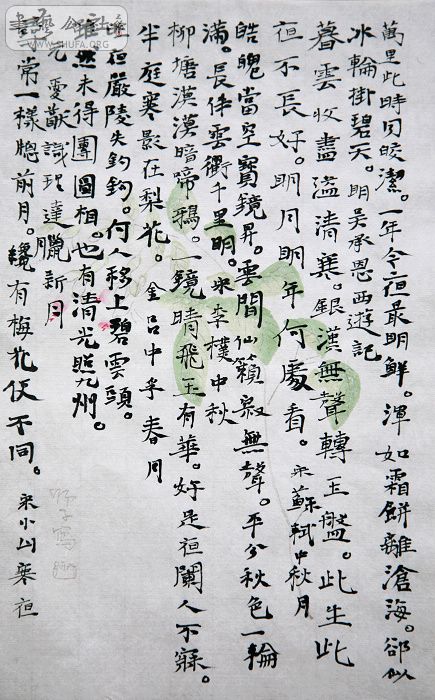 萬里此時同皎潔。一年今夜最明鮮。渾如霜餅離滄海。卻似
冰輪掛碧天。明吳承恩西遊記
暮雲收盡溢清寒。銀漢無聲轉玉盤。此生此
夜不長好。明月明年何處看。宋蘇軾中秋月
皓魄當空寶鏡昇。雲間仙籟寂無聲。平分秋色一輪
滿。長伴雲衢千里明。宋李樸中秋
柳塘漠漠暗啼鴉。一鏡晴飛玉有華。好是夜闌人不寐。
半庭寒影在梨花。金呂中孚春月
昨夜嚴陵失釣鉤。何人移上碧雲頭。
雖然未得團圓相。也有清光照九州。
元愛猷識理達臘新月
尋常一樣窗前月。纔有梅花便不同。宋小山寒夜
WWW.SHUFA.ORG